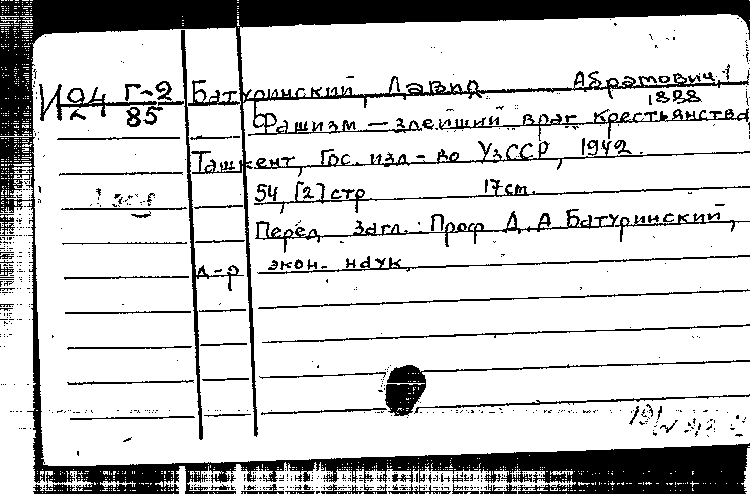 И94 Г-2
2 85
Батуринский, Давид Абрамович, 1
1888
Фашизм — злейший враг крестьянства
Ташкент, Гос. изд-во УзССР, 1942.
54, [2] стр 17 ст.
Перед загл.: Проф Д. А Батуринский,
д-р экон. наук.